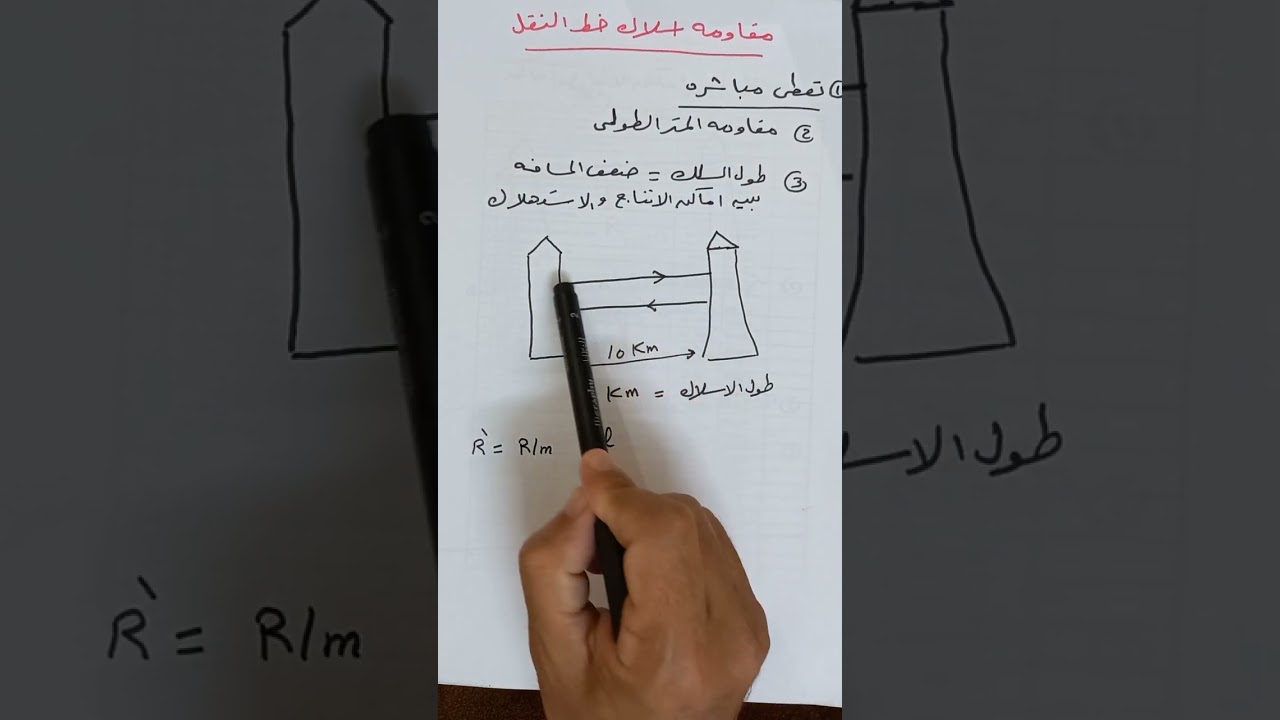 مقاومه اسلاك خط النقل
① تعطى مباشره
② مقاومه المتر الطولى
③ طول السلك = ضعف المسافه
بين اماكن الانتاج والاستهلاك
10 Km
طول الاسلاك = Km
R` = R/m l